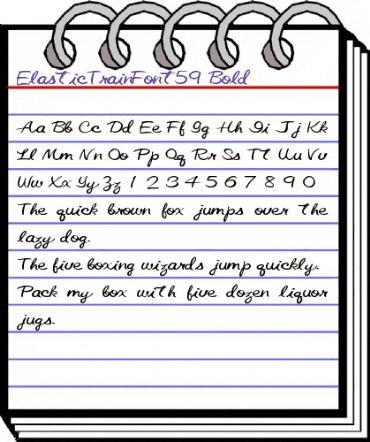 ElasticTrainFont59 Bold
Aa Bb Cc Dd Ee Ff Gg Hh Ii Jj Kk
Ll Mm Nn Oo Pp Qq Rr Ss Tt Uu Vv
Ww Xx Yy Zz 1 2 3 4 5 6 7 8 9 0
The quick brown fox jumps over the
lazy dog.
The five boxing wizards jump quickly.
Pack my box with five dozen liquor
jugs.